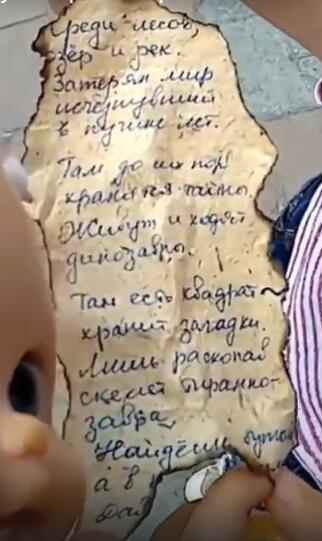 Среди лесов,
озёр и рек.
Затерян мир
исчезнувший
в пучине лет.
Там до сих пор
хранятся тайны.
Живут и ходят
динозавры.
Там есть квадрат
хранит загадки.
Лишь раскопав
скелет тиранно-
завра,
Найдёшь
а в